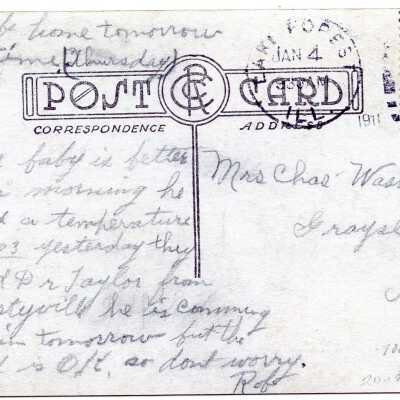 home tomorrow
time (Thursday)
POST CARD
CORRESPONDENCE
ADDRESS
LAKE FOREST
JAN 4
1911
ILL
baby is better
morning he
a temperature
03 yesterday they
Dr Taylor from
tyville he is comming
tomorrow but the
is O.K. so dont worry.
Rob
Mrs Chas Was
Grays